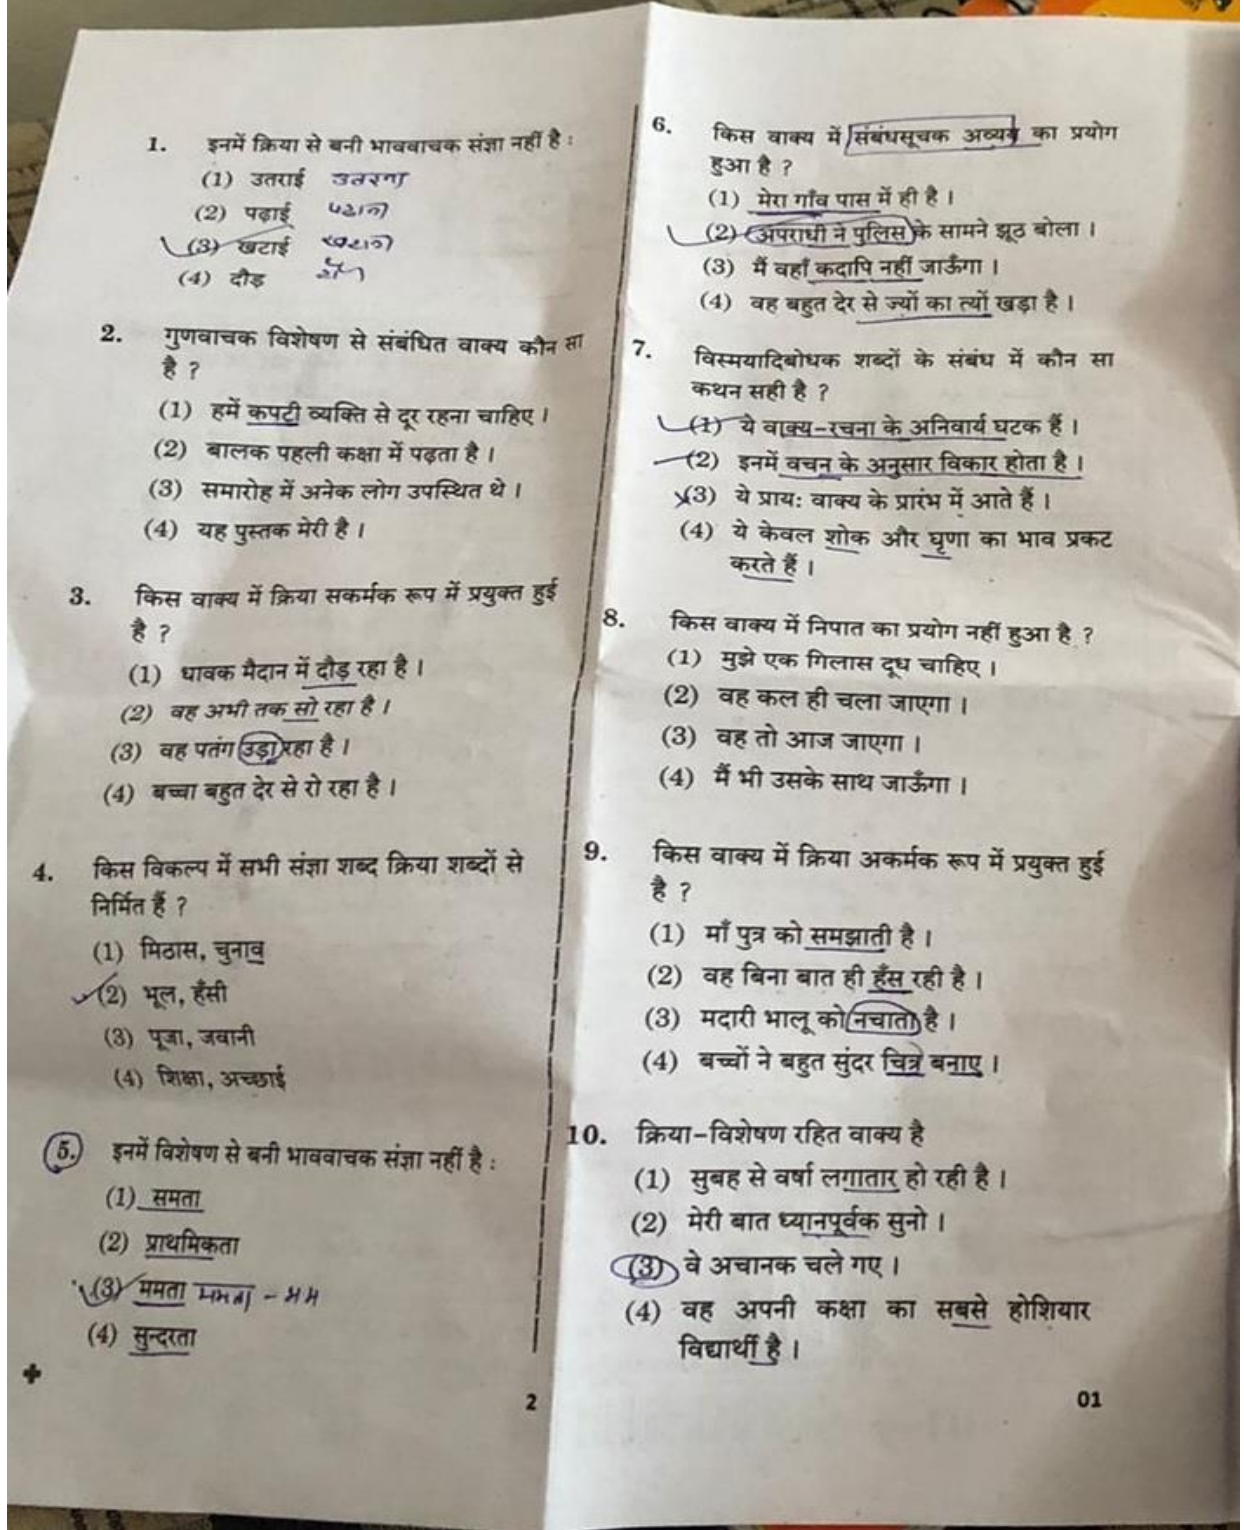 1. इनमें क्रिया से बनी भाववाचक संज्ञा नहीं है :
(1) उतराई उतरना
(2) पढ़ाई
(3) खटाई
(4) दौड़
2. गुणवाचक विशेषण से संबंधित वाक्य कौन सा
है ?
(1) हमें कपटी व्यक्ति से दूर रहना चाहिए ।
(2) बालक पहली कक्षा में पढ़ता है ।
(3) समारोह में अनेक लोग उपस्थित थे ।
(4) यह पुस्तक मेरी है ।
3. किस वाक्य में क्रिया सकर्मक रूप में प्रयुक्त हुई
है ?
(1) धावक मैदान में दौड़ रहा है ।
(2) वह अभी तक सो रहा है ।
(3) वह पतंग उड़ा रहा है ।
(4) बच्चा बहुत देर से रो रहा है ।
4. किस विकल्प में सभी संज्ञा शब्द क्रिया शब्दों से
निर्मित हैं ?
(1) मिठास, चुनाव
(2) भूल, हँसी
(3) पूजा, जवानी
(4) शिक्षा, अच्छाई
5. इनमें विशेषण से बनी भाववाचक संज्ञा नहीं है :
(1) समता
(2) प्राथमिकता
(3) ममता ममता - मम
(4) सुन्दरता
2
6. किस वाक्य में संबंधसूचक अव्यय का प्रयोग
हुआ है ?
(1) मेरा गाँव पास में ही है ।
(2) अपराधी ने पुलिस के सामने झूठ बोला ।
(3) मैं वहाँ कदापि नहीं जाऊँगा ।
(4) वह बहुत देर से ज्यों का त्यों खड़ा है ।
7. विस्मयादिबोधक शब्दों के संबंध में कौन सा
कथन सही है ?
(1) ये वाक्य-रचना के अनिवार्य घटक हैं ।
(2) इनमें वचन के अनुसार विकार होता है ।
(3) ये प्राय: वाक्य के प्रारंभ में आते हैं ।
(4) ये केवल शोक और घृणा का भाव प्रकट
करते हैं ।
8. किस वाक्य में निपात का प्रयोग नहीं हुआ है ?
(1) मुझे एक गिलास दूध चाहिए ।
(2) वह कल ही चला जाएगा ।
(3) वह तो आज जाएगा ।
(4) मैं भी उसके साथ जाऊँगा ।
9. किस वाक्य में क्रिया अकर्मक रूप में प्रयुक्त हुई
है ?
(1) माँ पुत्र को समझाती है ।
(2) वह बिना बात ही हँस रही है ।
(3) मदारी भालू को नचाता है ।
(4) बच्चों ने बहुत सुंदर चित्र बनाए ।
10. क्रिया-विशेषण रहित वाक्य है
(1) सुबह से वर्षा लगातार हो रही है ।
(2) मेरी बात ध्यानपूर्वक सुनो ।
(3) वे अचानक चले गए ।
(4) वह अपनी कक्षा का सबसे होशियार
विद्यार्थी है ।
01